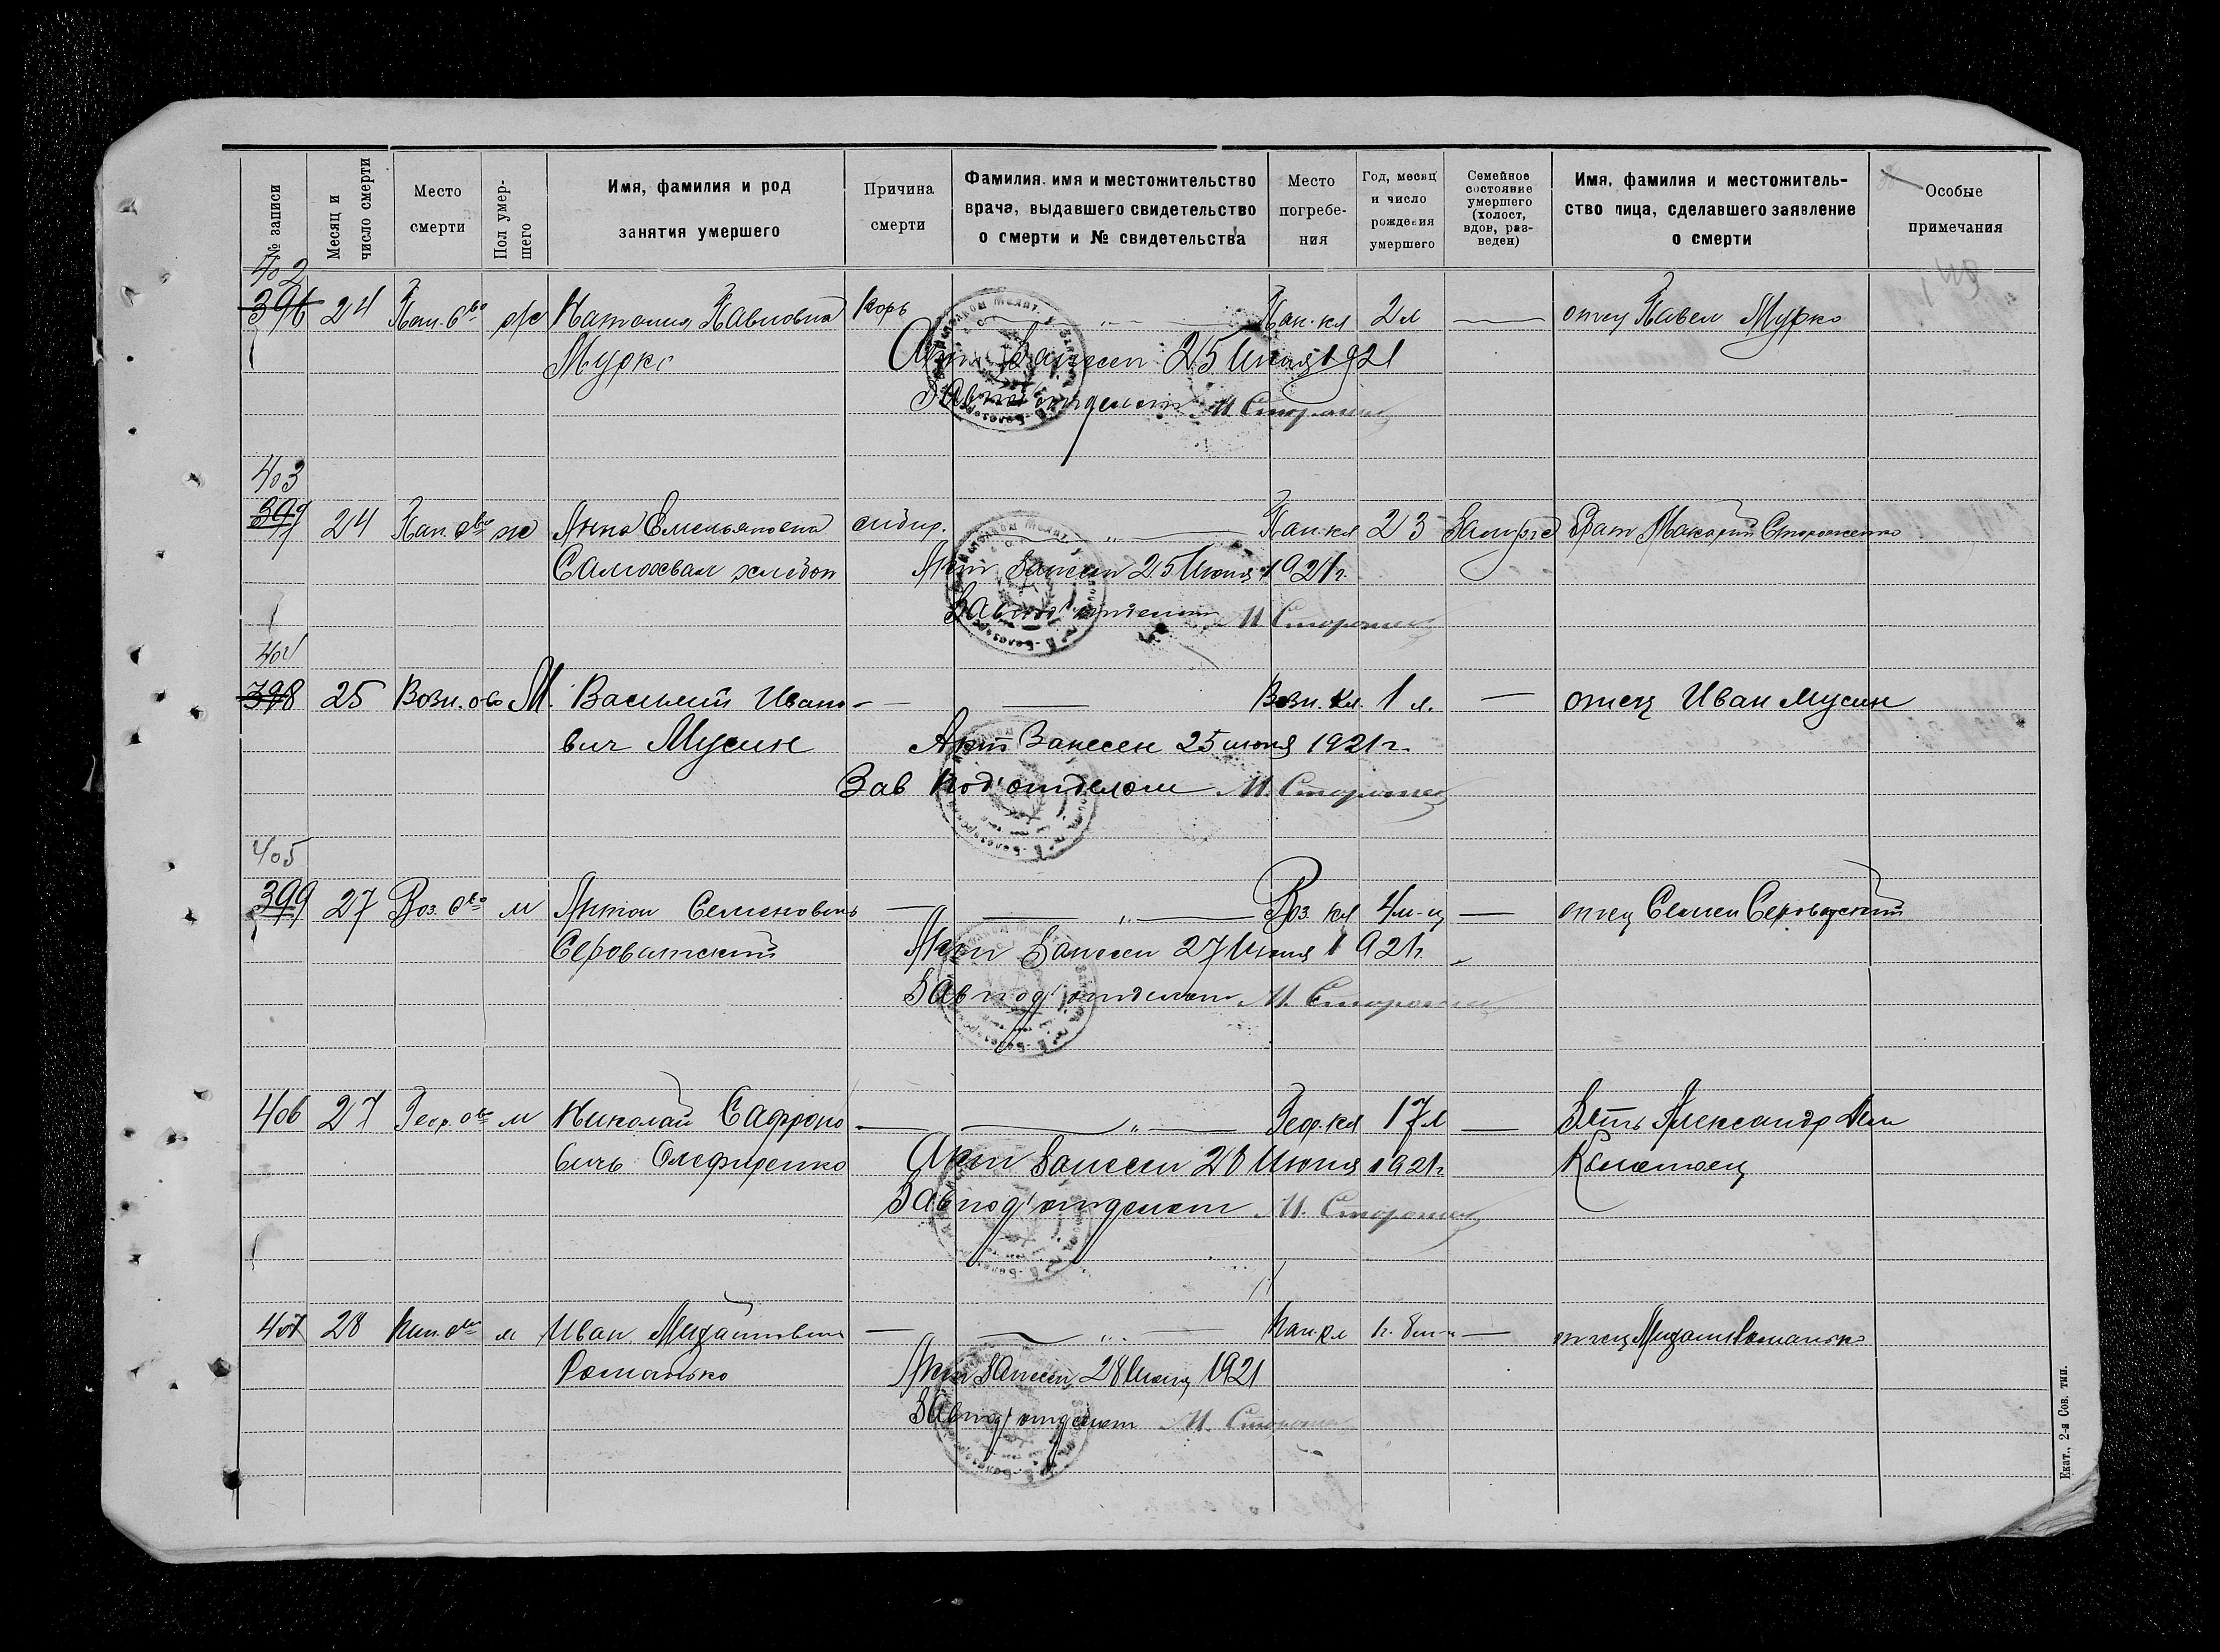 № записи
Месяц и число смерти
Место смерти
Пол умершего
Имя, фамилия и род занятия умершего
Причина смерти
Фамилия. имя и местожительство врача, выдавшего свидетельство о смерти и № свидетельства
Место погребения
Год, месяц и число рождения умершего
Семейное состояние умершего (холост, вдов, разведен)
Имя, фамилия и местожительство лица, сделавшего заявление о смерти
Особые примечания
402
396 24 ж Наталия Павловна Корь 2 л отец Павел Мурко
Мурко Акт Занесен 25 Июня 1921
Зав под'отделом М. Стороженко
403
397 24 ж Анна Емельяновна 23 Замуж Макарий Стороженко
Самохвал Акт Занесен 25 Июня 1921 г.
Зав под'отделом М. Стороженко
404
398 25 Возн. о-во М. Василий Ивано- Возн. кл. 1 л. — отец Иван Мусин
вич Мусин Акт Занесен 25 июня 1921 г.
Зав Под'отделом М. Стороженко
405
399 27 Воз. о-во м Антон Семенович — Воз. кл 4 м-ц — отец Семен
Акт Занесен 27 Июня 1921 г.
Зав под'отделом М. Стороженко
406 27 Геор. о-во м Николай Сафроно — Геор. кл 17 л — Зять Александр
вичь Олефиренко Акт Занесен 28 Июня 1921 г.
Зав под'отделом М. Стороженко
407 28 м Иван Михайлович — отец Михаил Романько
Романько Акт Занесен 28 Июня 1921
Зав под'отделом М. Стороженко
Екат., 2-я Сов. тип.